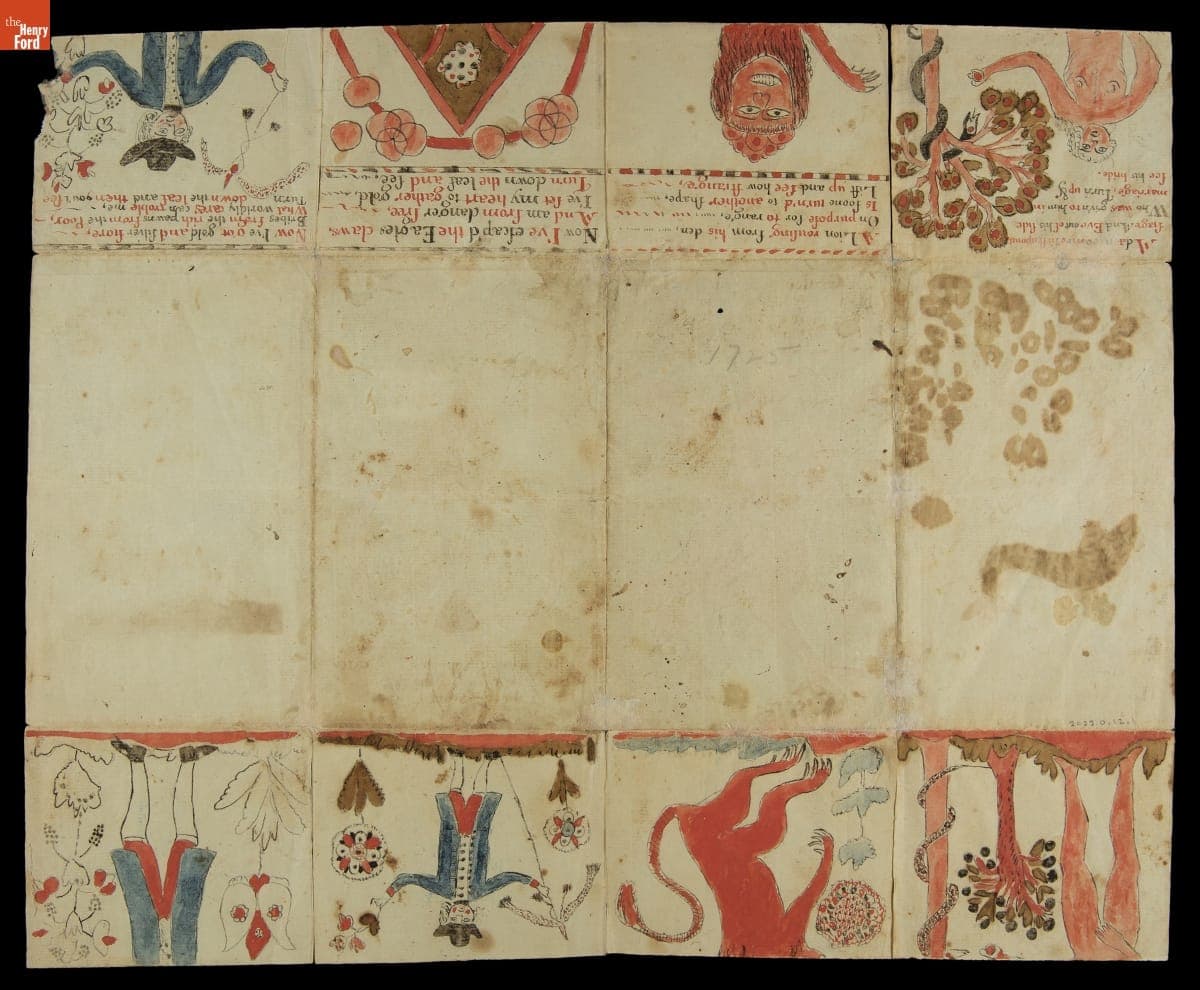 the
Henry
Ford
stage, And Eve out of his side,
Who was givin him in
marriage, turn up &
ſee his bride.
A Lion rouſing from his den,
On purpoſe for to range,
Is ſoone turn'd to another ſhape,
Lift up and ſee how ſtrange,
Now I've eſcap'd the Eagles claws,
And am from danger free,
I've ſet my heart to gather gold,
Turn down the leaf and ſee
Now I've got gold and ſilver ſtore,
Bribes from the rich pawns from the Poor,
What worldly cares can troble me,
Turn down the leaf and then you'l ſee
1725
2022.0.12.1